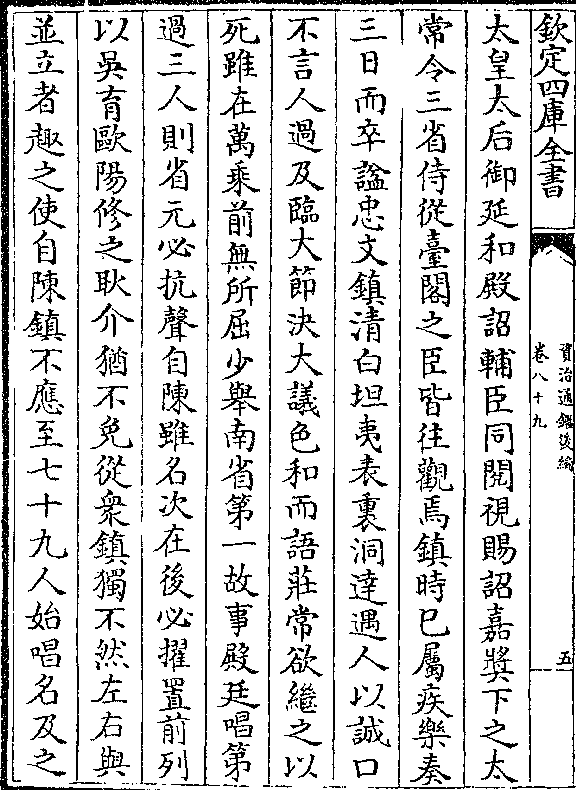 欽定四庫全書
資治通鑑後編
卷八十九
五
太皇太后御延和殿詔輔臣同閱視賜詔嘉奬下之太
常令三省侍從臺閣之臣皆往觀焉鎮時已屬疾樂奏
三日而卒諡忠文鎮清白坦夷表裏洞達遇人以誠口
不言人過及臨大節決大議色和而語莊常欲繼之以
死雖在萬乘前無所屈少舉南省第一故事殿廷唱第
過三人則省元必抗聲自陳雖名次在後必擢置前列
以吳育歐陽修之耿介猶不免從衆鎮獨不然左右與
並立者趣之使自陳鎮不應至七十九人始唱名及之